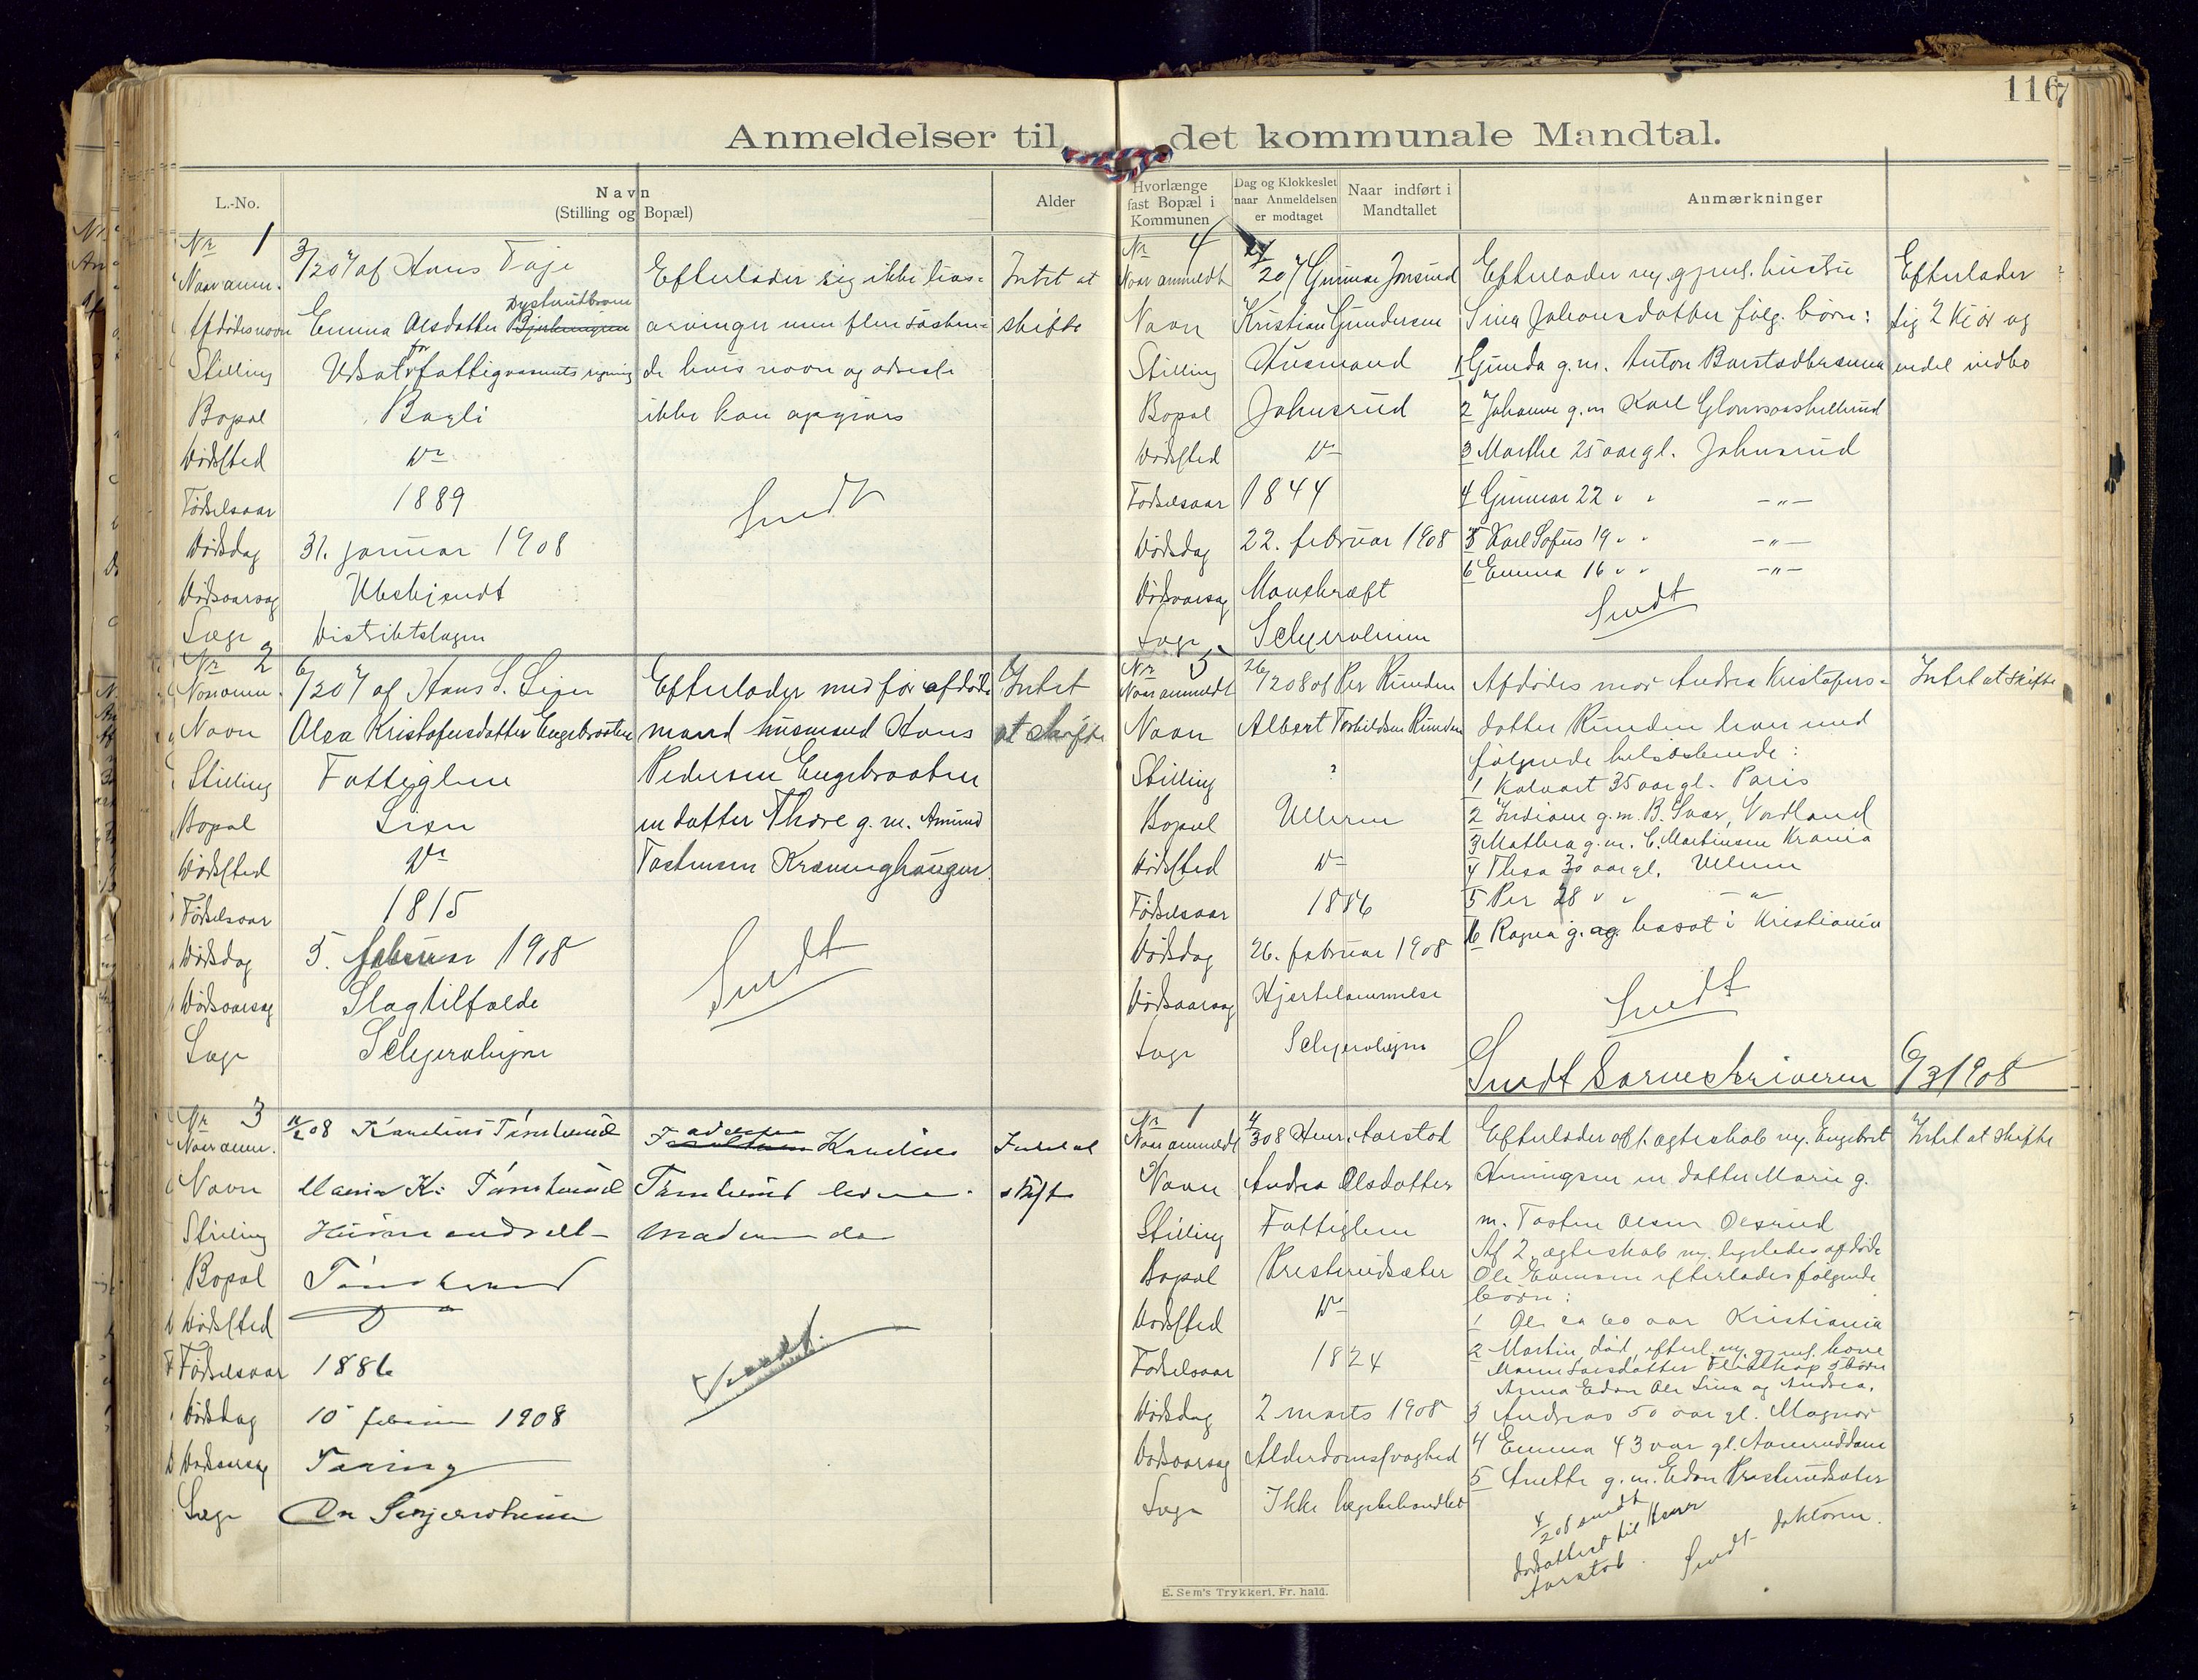 116
Anmeldelser til det kommunale Mandtal.
L.-No.
Navn
(Stilling og Bopæl)
Alder
Nr 1
Naar anm. 3/2 07 af Hans
Afdødes navn Emma Olsdatter
Stilling for fattigvæsenets regning
Bopæl Bagli
Dødssted Do
Fødselsaar 1889
Dødsdag 31. januar 1908
Dødsaarsag Ubekjendt
Læge Distriktslægen
Efterlader sig ikke livs-
arvinger men flere søsken-
de hvis navn og adresse
ikke kan opgives
Sendt
Intet at
skifte
Nr 2
Naar anm. 6/2 07 af Hans S. Lien
Navn Olea Kristofersdatter Engebraaten
Stilling Fattiglem
Bopæl Lien
Dødssted Do
Fødselsaar 1815
Dødsdag 5. februar 1908
Dødsaarsag Slagtilfælde
Læge
Efterlader med før afdøde
mand husmand Hans
Pedersen Engebraaten
en datter Thore g. m. Amund
Tostensen
Sendt
Intet
at skifte
Nr 3
Naar anm. 11/2 08 Karelius
Navn Maria K.
Stilling
Bopæl
Dødssted
Fødselsaar 1886
Dødsdag 10 februar 1908
Dødsaarsag Tæring
Læge Dr
Faderen Karelius
Moderen død
Sendt.
Intet at
skifte
Hvorlænge
fast Bopæl i
Kommunen
Dag og Klokkeslet
naar Anmeldelsen
er modtaget
Naar indført i
Mandtallet
Anmærkninger
Nr 4
Naar anmeldt Gunnar Jonsrud
Navn Kristian Gundersen
Stilling Husmand
Bopæl Johnsrud
Dødssted Do
Fødselsaar 1844
Dødsdag 22. februar 1908
Dødsaarsag Mavekræft
Læge
Efterlader nv. gjenl. hustru
Sina Johansdatter følg. børn:
1 Gunda g. m. Anton
2 Johanne g. m. Karl
3 Marthe 25 aar gl. Johnsrud
4 Gunnar 22 " " -"-
5 Karl Sofus 19 " " -"-
6 Emma 16 " " -"-
Sendt
Efterlader
sig 2 kjør og
endel indbo
Nr 5
Naar anmeldt 26/2 08 af Per Runden
Navn Albert Torkildsen Runden
Stilling ?
Bopæl Ulleren
Dødssted Do
Fødselsaar 1886
Dødsdag 26. februar 1908
Dødsaarsag Hjertelammelse
Læge
Afdødes mor Andrea Kristofers-
datter Runden har med
følgende helsøskende:
1 Kalvart 35 aar gl. Paris
2 Indiane g. m. B. Svar, Nordland
3 Mathea g. m. C. Martinsen Krania
4 Thea 30 aar gl. Ulleren
5 Per 28 " " -"-
6 Ragna g. og bosat i Kristiania
Sendt
Sendt Sorenskriveren 6/3 1908
Intet at skifte
Nr 1
Naar anmeldt 4/3 08 Henr. Aarstad
Navn Andrea Olsdatter
Stilling Fattiglem
Bopæl Presterudsæter
Dødssted Do
Fødselsaar 1824
Dødsdag 2 marts 1908
Dødsaarsag Alderdomssvaghed
Læge Ikke lægebehandlet
Efterlader af 1. ægteskab nv. Engebret
Henningsen en datter Marie g.
m. Tosten Olsen Olsrud
Af 2. ægteskab nv. ligeledes afdøde
Ole Evensen efterlades følgende
børn:
1 Ole ca 60 aar Kristiania
2 Martin død, efterl. nv. gjenl. kone
Maren Larsdatter 5 børn
Anna Edon Ole Lina og Andrea.
3 Andreas 50 aar gl. Magnor
4 Emma 43 aar gl.
5 Anette g. m. Edon Presterudsæter
sendt
dødsattest til Henr
Aarstad.
Sendt doktoren.
Intet at skifte
E. Sem's Trykkeri, Fr.hald.